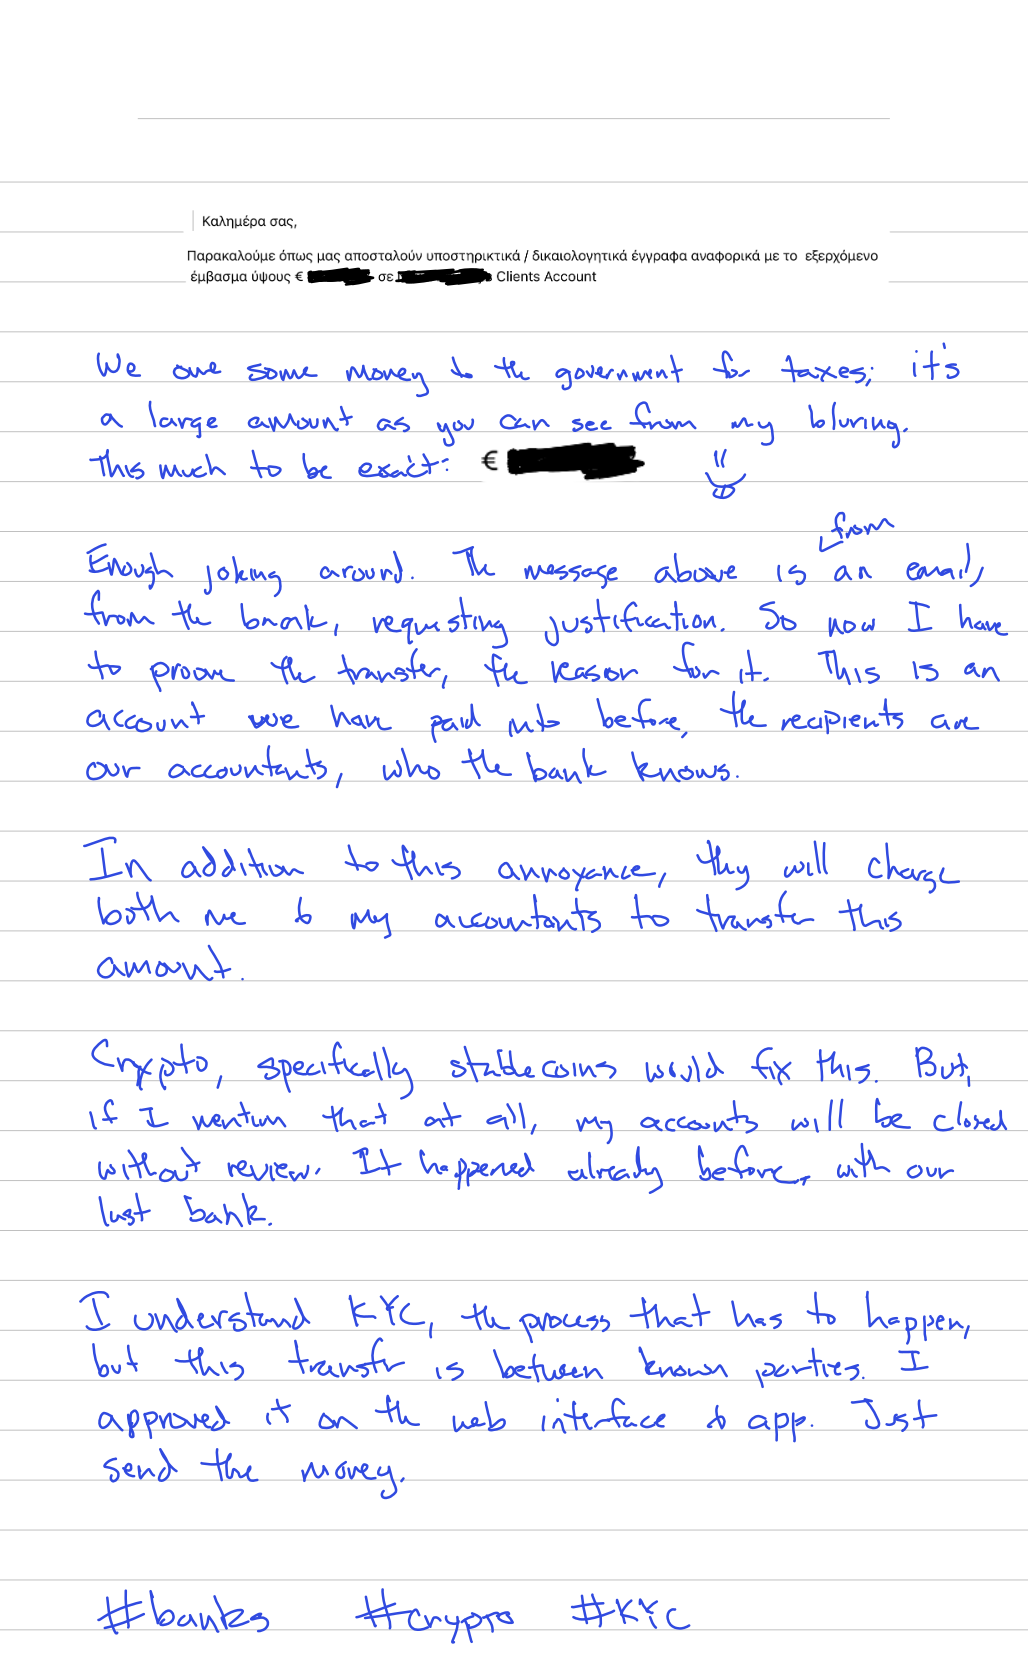 Καλημέρα σας,
Παρακαλούμε όπως μας αποσταλούν υποστηρικτικά / δικαιολογητικά έγγραφα αναφορικά με το εξερχόμενο
έμβασμα ύψους € σε Clients Account
We owe some money to the government for taxes; it's
a large amount as you can see from my bluring.
This much to be exact: €
from
Enough joking around. The message above is an email,
from the bank, requesting justification. So now I have
to proove the transfer, the reason for it. This is an
account we have paid into before, the recipients are
our accountants, who the bank knows.
In addition to this annoyance, they will charge
both me & my accountants to transfer this
amount.
Crypto, specifically stablecoins would fix this. But,
if I mention that at all, my accounts will be closed
without review. It happened already before, with our
last bank.
I understand KYC, the process that has to happen,
but this transfer is between known parties. I
approved it on the web interface & app. Just
send the money.
#banks #crypto #KYC